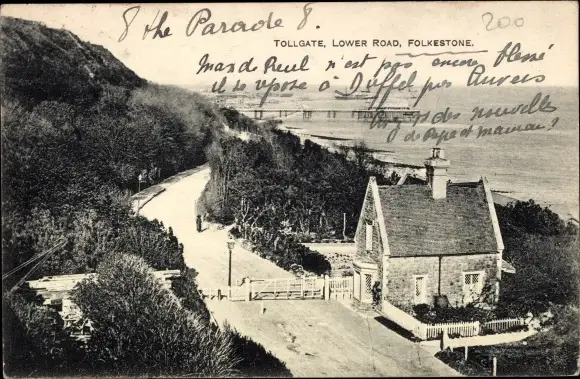 8 the Parade 8.
200
TOLLGATE, LOWER ROAD, FOLKESTONE.
Mais Paul n'est pas encore blessé
il se repose à Duffel près Anvers
As des nouvelles
de Papa et maman?